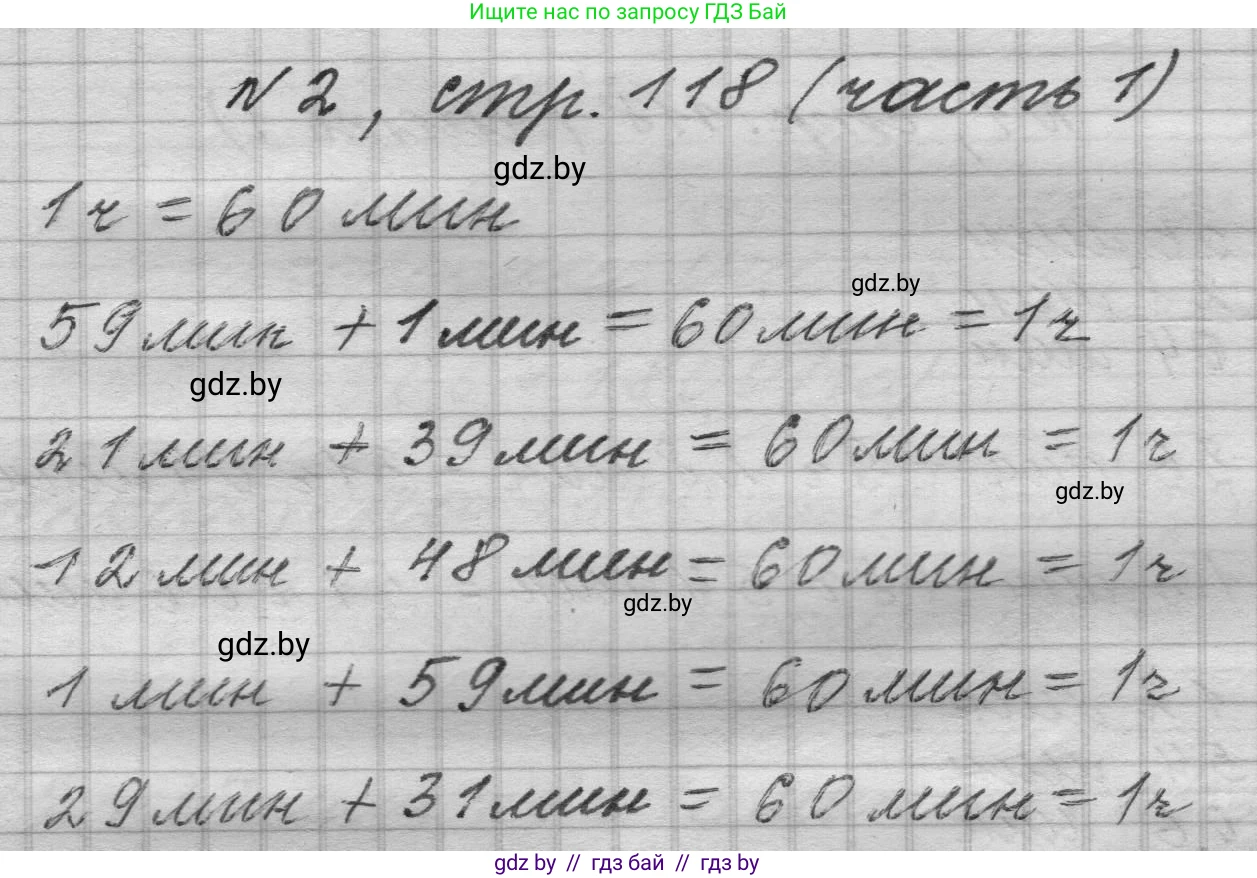 Ищите нас по запросу ГДЗ Бай
№ 2, стр. 118 (часть 1)
gdz.by
1 ч = 60 мин
gdz.by
59 мин + 1 мин = 60 мин = 1 ч
gdz.by
21 мин + 39 мин = 60 мин = 1 ч
gdz.by
12 мин + 48 мин = 60 мин = 1 ч
gdz.by
gdz.by
1 мин + 59 мин = 60 мин = 1 ч
29 мин + 31 мин = 60 мин = 1 ч
gdz by // гдз бай // гдз by